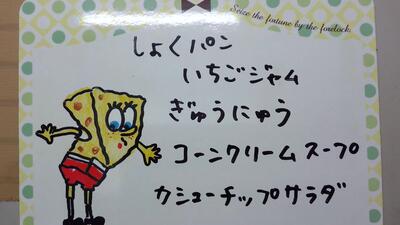 Seize the fortune by the forelock.
しょくパン
いちごジャム
ぎゅうにゅう
コーンクリームスープ
カシューチップサラダ